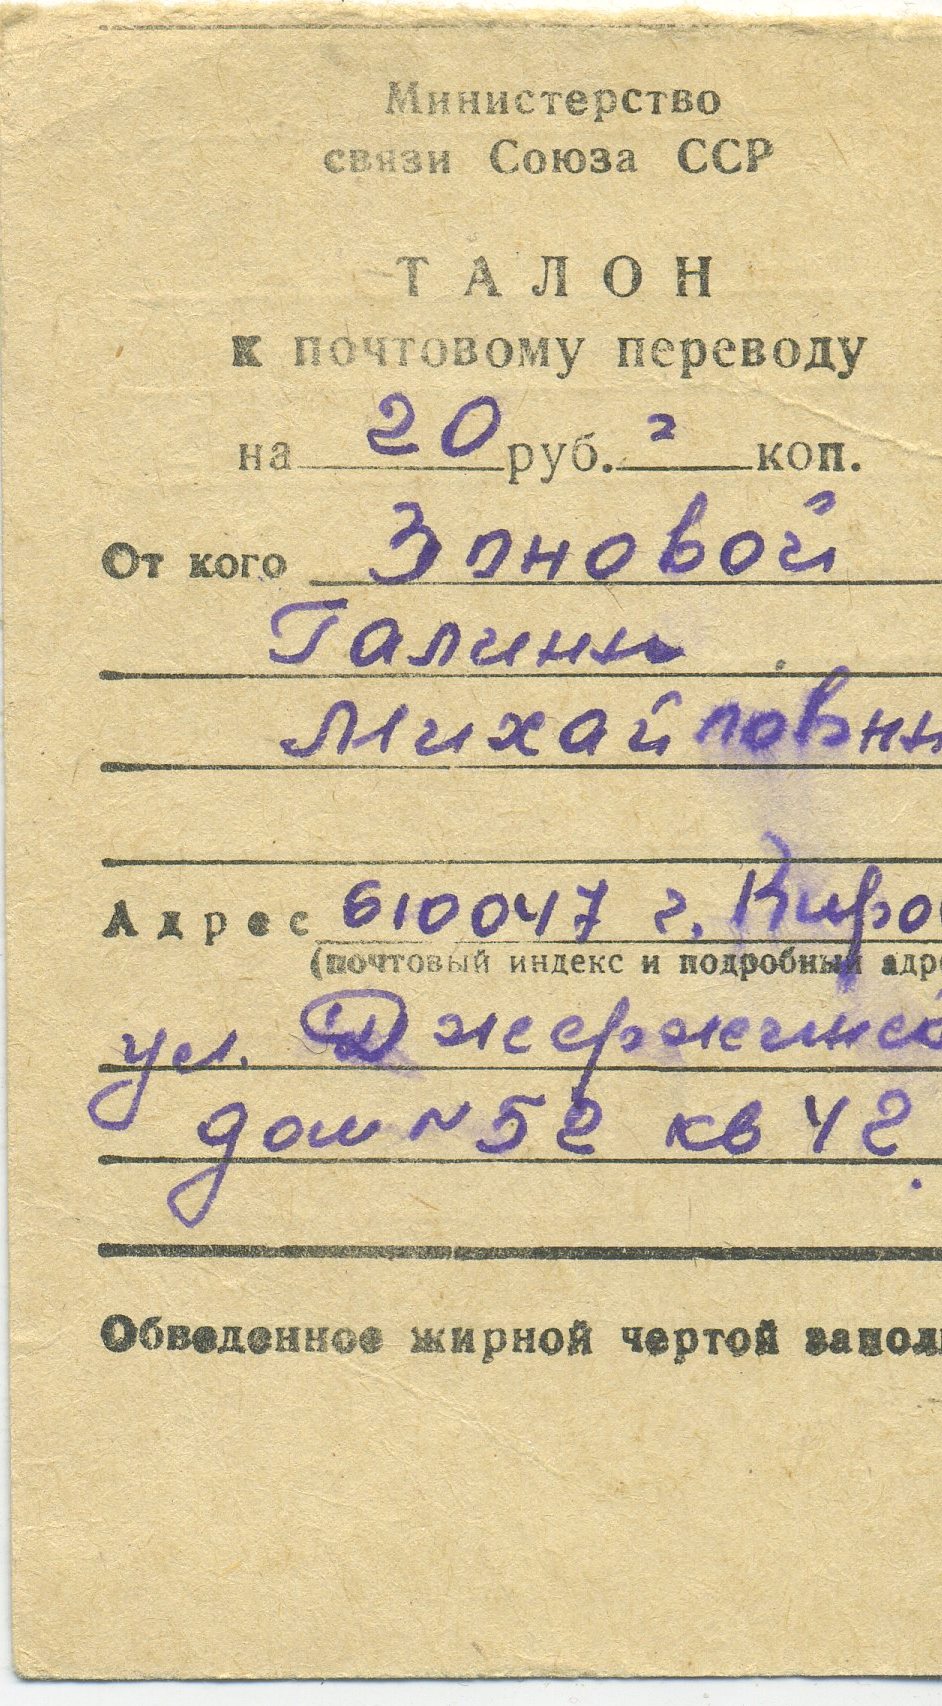 Министерство
связи Союза ССР
ТАЛОН
к почтовому переводу
на 20 руб. 2 коп.
От кого Зоновой
Галины
Михайловны
Адрес 610047 г. Киров
(почтовый индекс и подробный адре
ул. Джержинско
дом N 52 кв 42.
Обведенное жирной чертой запол